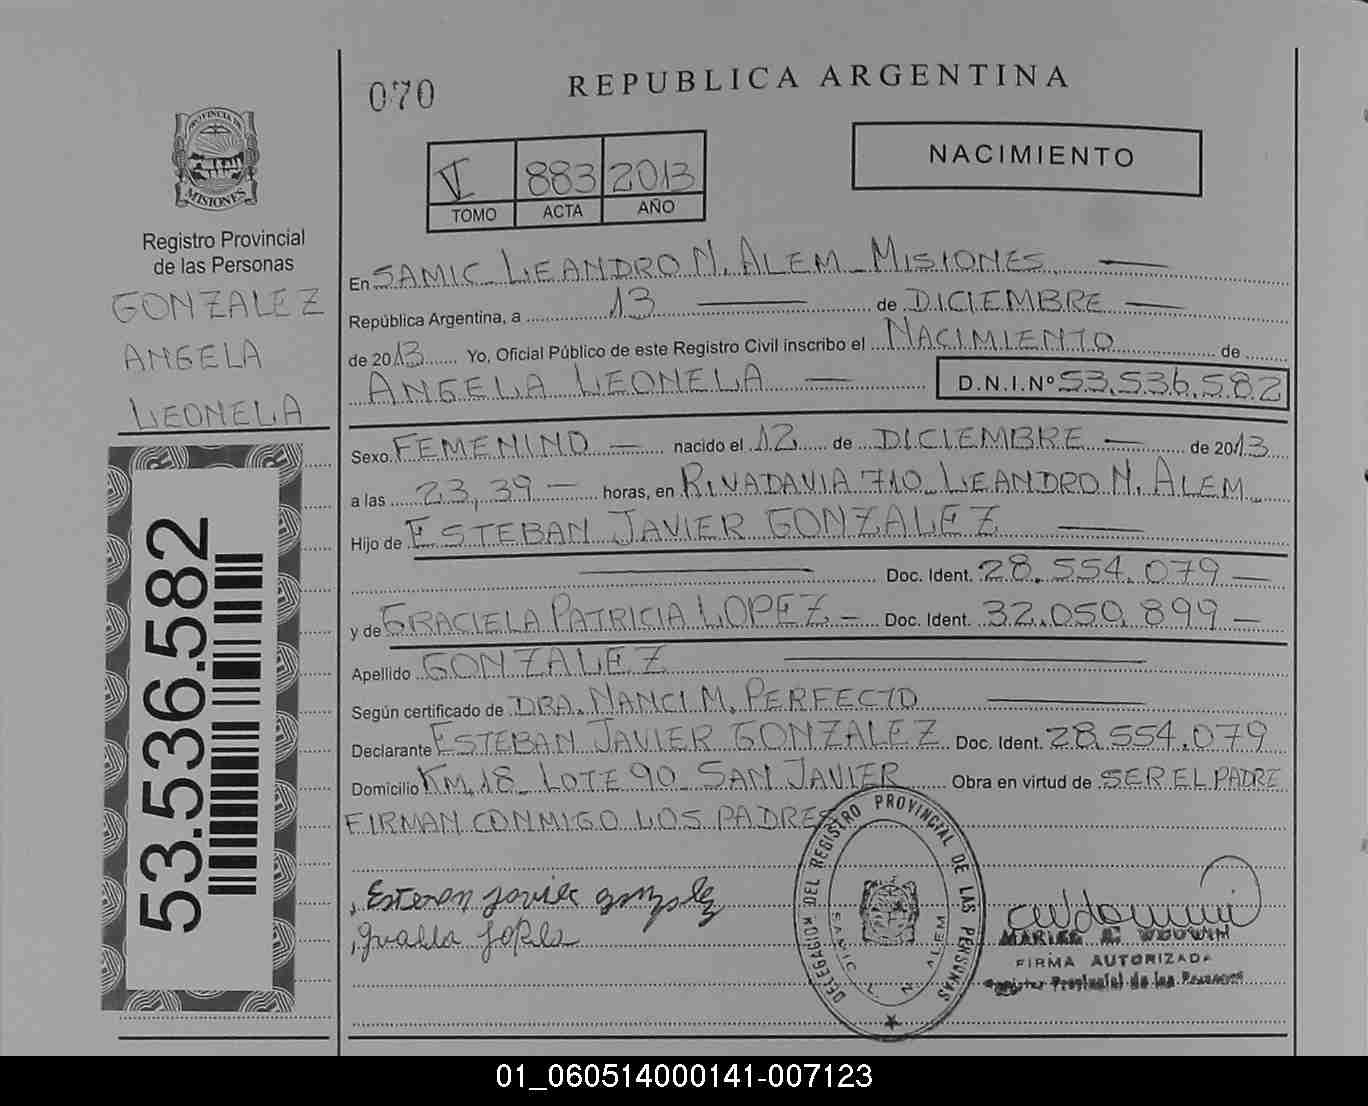 070
REPUBLICA ARGENTINA
NACIMIENTO
V 883 2013
TOMO ACTA AÑO
PROVINCIA DE
MISIONES
Registro Provincial
de las Personas
GONZALEZ
ANGELA
LEONELA
53.536.582
En SAMIC LEANDRO N. ALEM MISIONES
República Argentina, a 13 de DICIEMBRE
de 2013 Yo, Oficial Público de este Registro Civil inscribo el NACIMIENTO de
ANGELA LEONELA D.N.I.Nº 53.536.582
Sexo FEMENINO nacido el 12 de DICIEMBRE de 2013
a las 23,39 horas, en RIVADAVIA 710 LEANDRO N. ALEM
Hijo de ESTEBAN JAVIER GONZALEZ
Doc. Ident. 28.554.079
y de GRACIELA PATRICIA LOPEZ Doc. Ident. 32.050.899
Apellido GONZALEZ
Según certificado de DRA. NANCI M. PERFECTO
Declarante ESTEBAN JAVIER GONZALEZ Doc. Ident. 28.554.079
Domicilio KM.18 LOTE 90 SAN JAVIER Obra en virtud de SER EL PADRE
FIRMAN CONMIGO LOS PADRES
Esteban Javier gonzalez
DELEGACION DEL REGISTRO PROVINCIAL DE LAS PERSONAS
SAMIC L. N. ALEM
FIRMA AUTORIZADA
Registro Provincial de las Personas
01_060514000141-007123